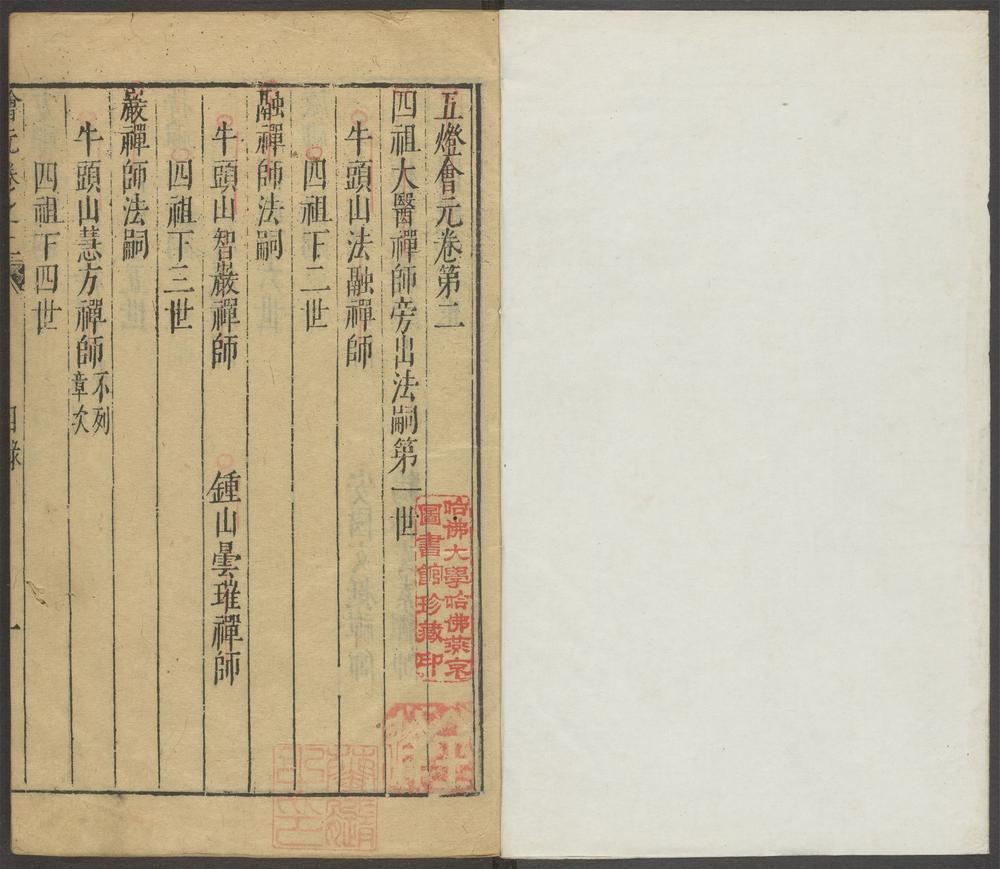 五燈會元卷第二
四祖大醫禪師旁出法嗣第一世
牛頭山法融禪師
四祖下二世
融禪師法嗣
牛頭山智巖禪師 鍾山曇璀禪師
四祖下三世
巖禪師法嗣
牛頭山慧方禪師不列章次
四祖下四世
會元卷之二 目錄 一
哈佛大學哈佛燕京
圖書館珍藏印